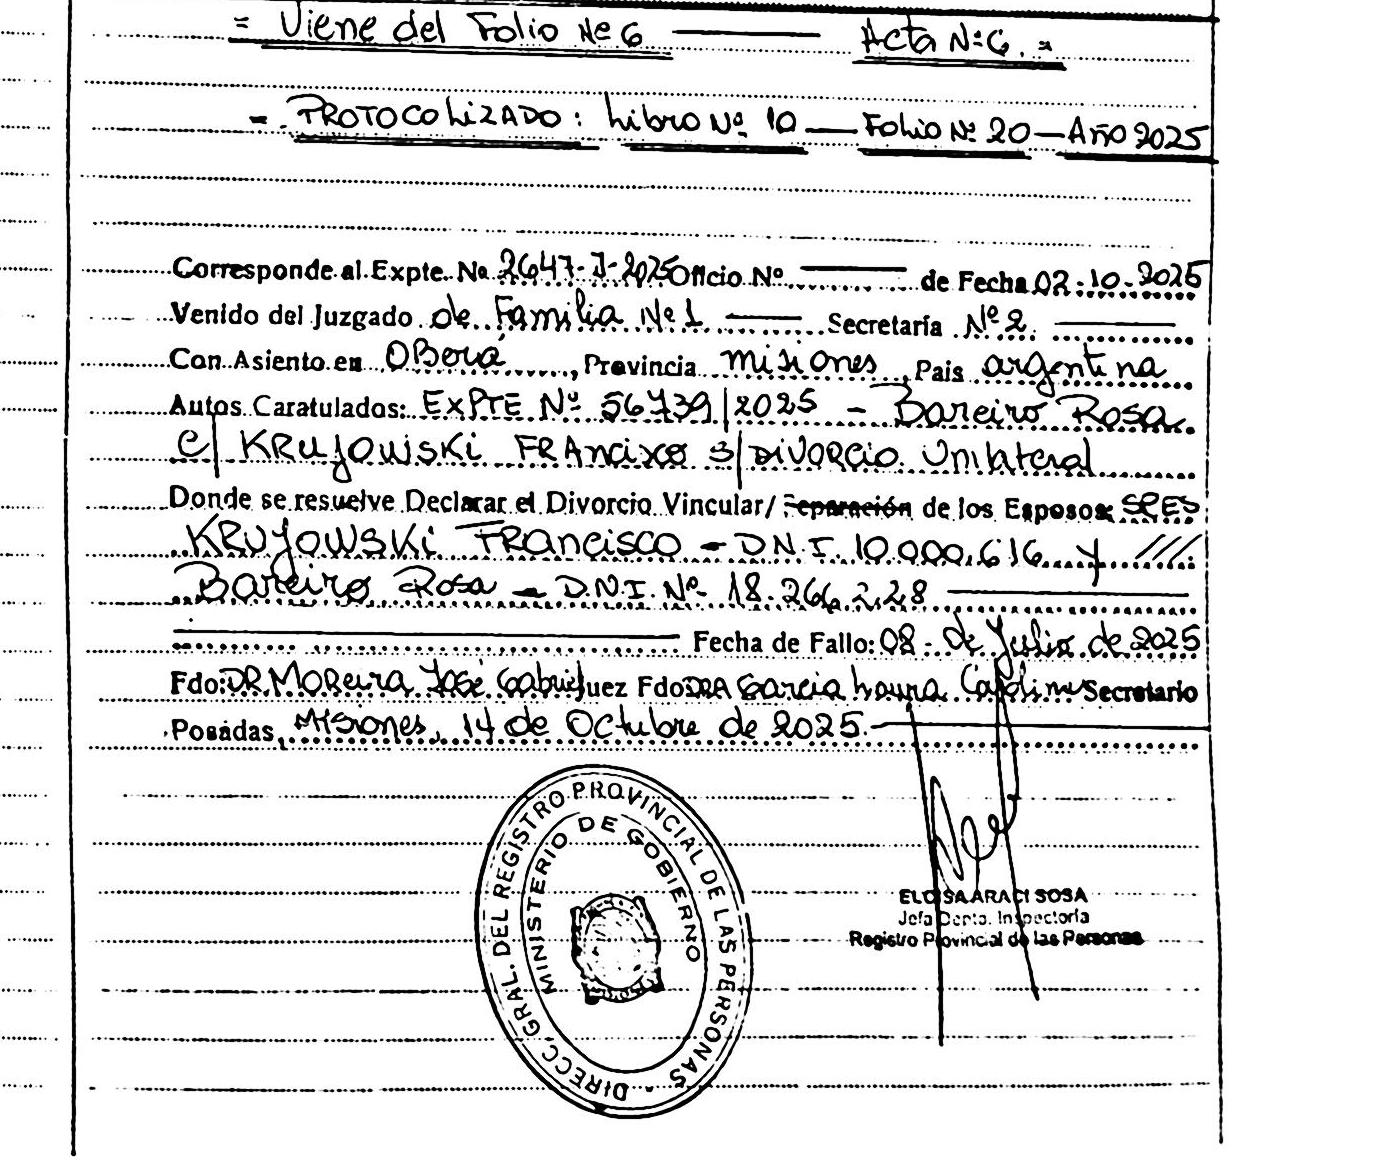 = Viene del Folio Nº 6 —— Acta Nº 6. =
= . PROTOCOLIZADO : Libro Nº 10 — Folio Nº 20 — Año 2025
Corresponde al Expte. Nº 2647-J-2025 Oficio Nº —— de Fecha 02-10-2025
Venido del Juzgado de Familia Nº 1 —— Secretaría Nº 2. ——
Con Asiento en OBerá, Provincia misiones, Pais argentina
Autos Caratulados: EXPTE Nº 56739/2025 - Bareiro Rosa
C/ KRUJOWSKI FRANcixo S/ DIVORCIO Unilateral
Donde se resuelve Declarar el Divorcio Vincular/ Separación de los Esposos: SRES
KRUJOWSKI FRANCISCO - D.N.I. 10.000.616 y ///
Bareiro Rosa - D.N.I. Nº 18.266.228 ——
—— Fecha de Fallo: 08 - de Julio de 2025
Fdo: DR Moreira José Gabriel Juez Fdo DRA Garcia Laura Carolina Secretario
Posadas, Misiones, 14 de Octubre de 2025. ——
DIRECC. GRAL. DEL REGISTRO PROVINCIAL DE LAS PERSONAS -
MINISTERIO DE GOBIERNO
ELOISA ARACI SOSA
Jefa Dpto. Inspectoría
Registro Provincial de las Personas